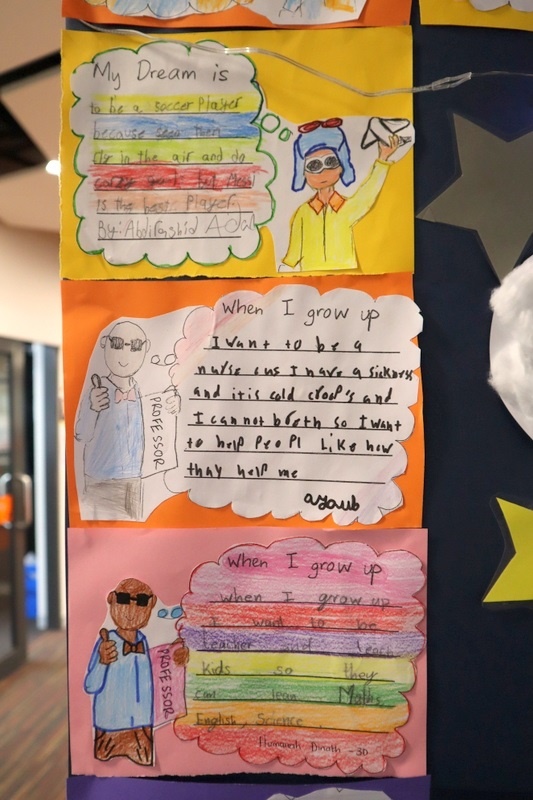 My Dream is
to be a soccer Plaster
because
in the air and do
but
is the best Player.
By: Abdirashid Adal
When I grow up
I want to be a
nurse cus I have a sickness
and it is cold croop's and
I can not breth so I want
to help PeoPl like how
thay help me
ayaub
PROFESSOR
When I grow up
when I grow up
I want to be
teacher and teach
Kids so they
can lean Maths,
English, Science
- 3D
PROFESSOR